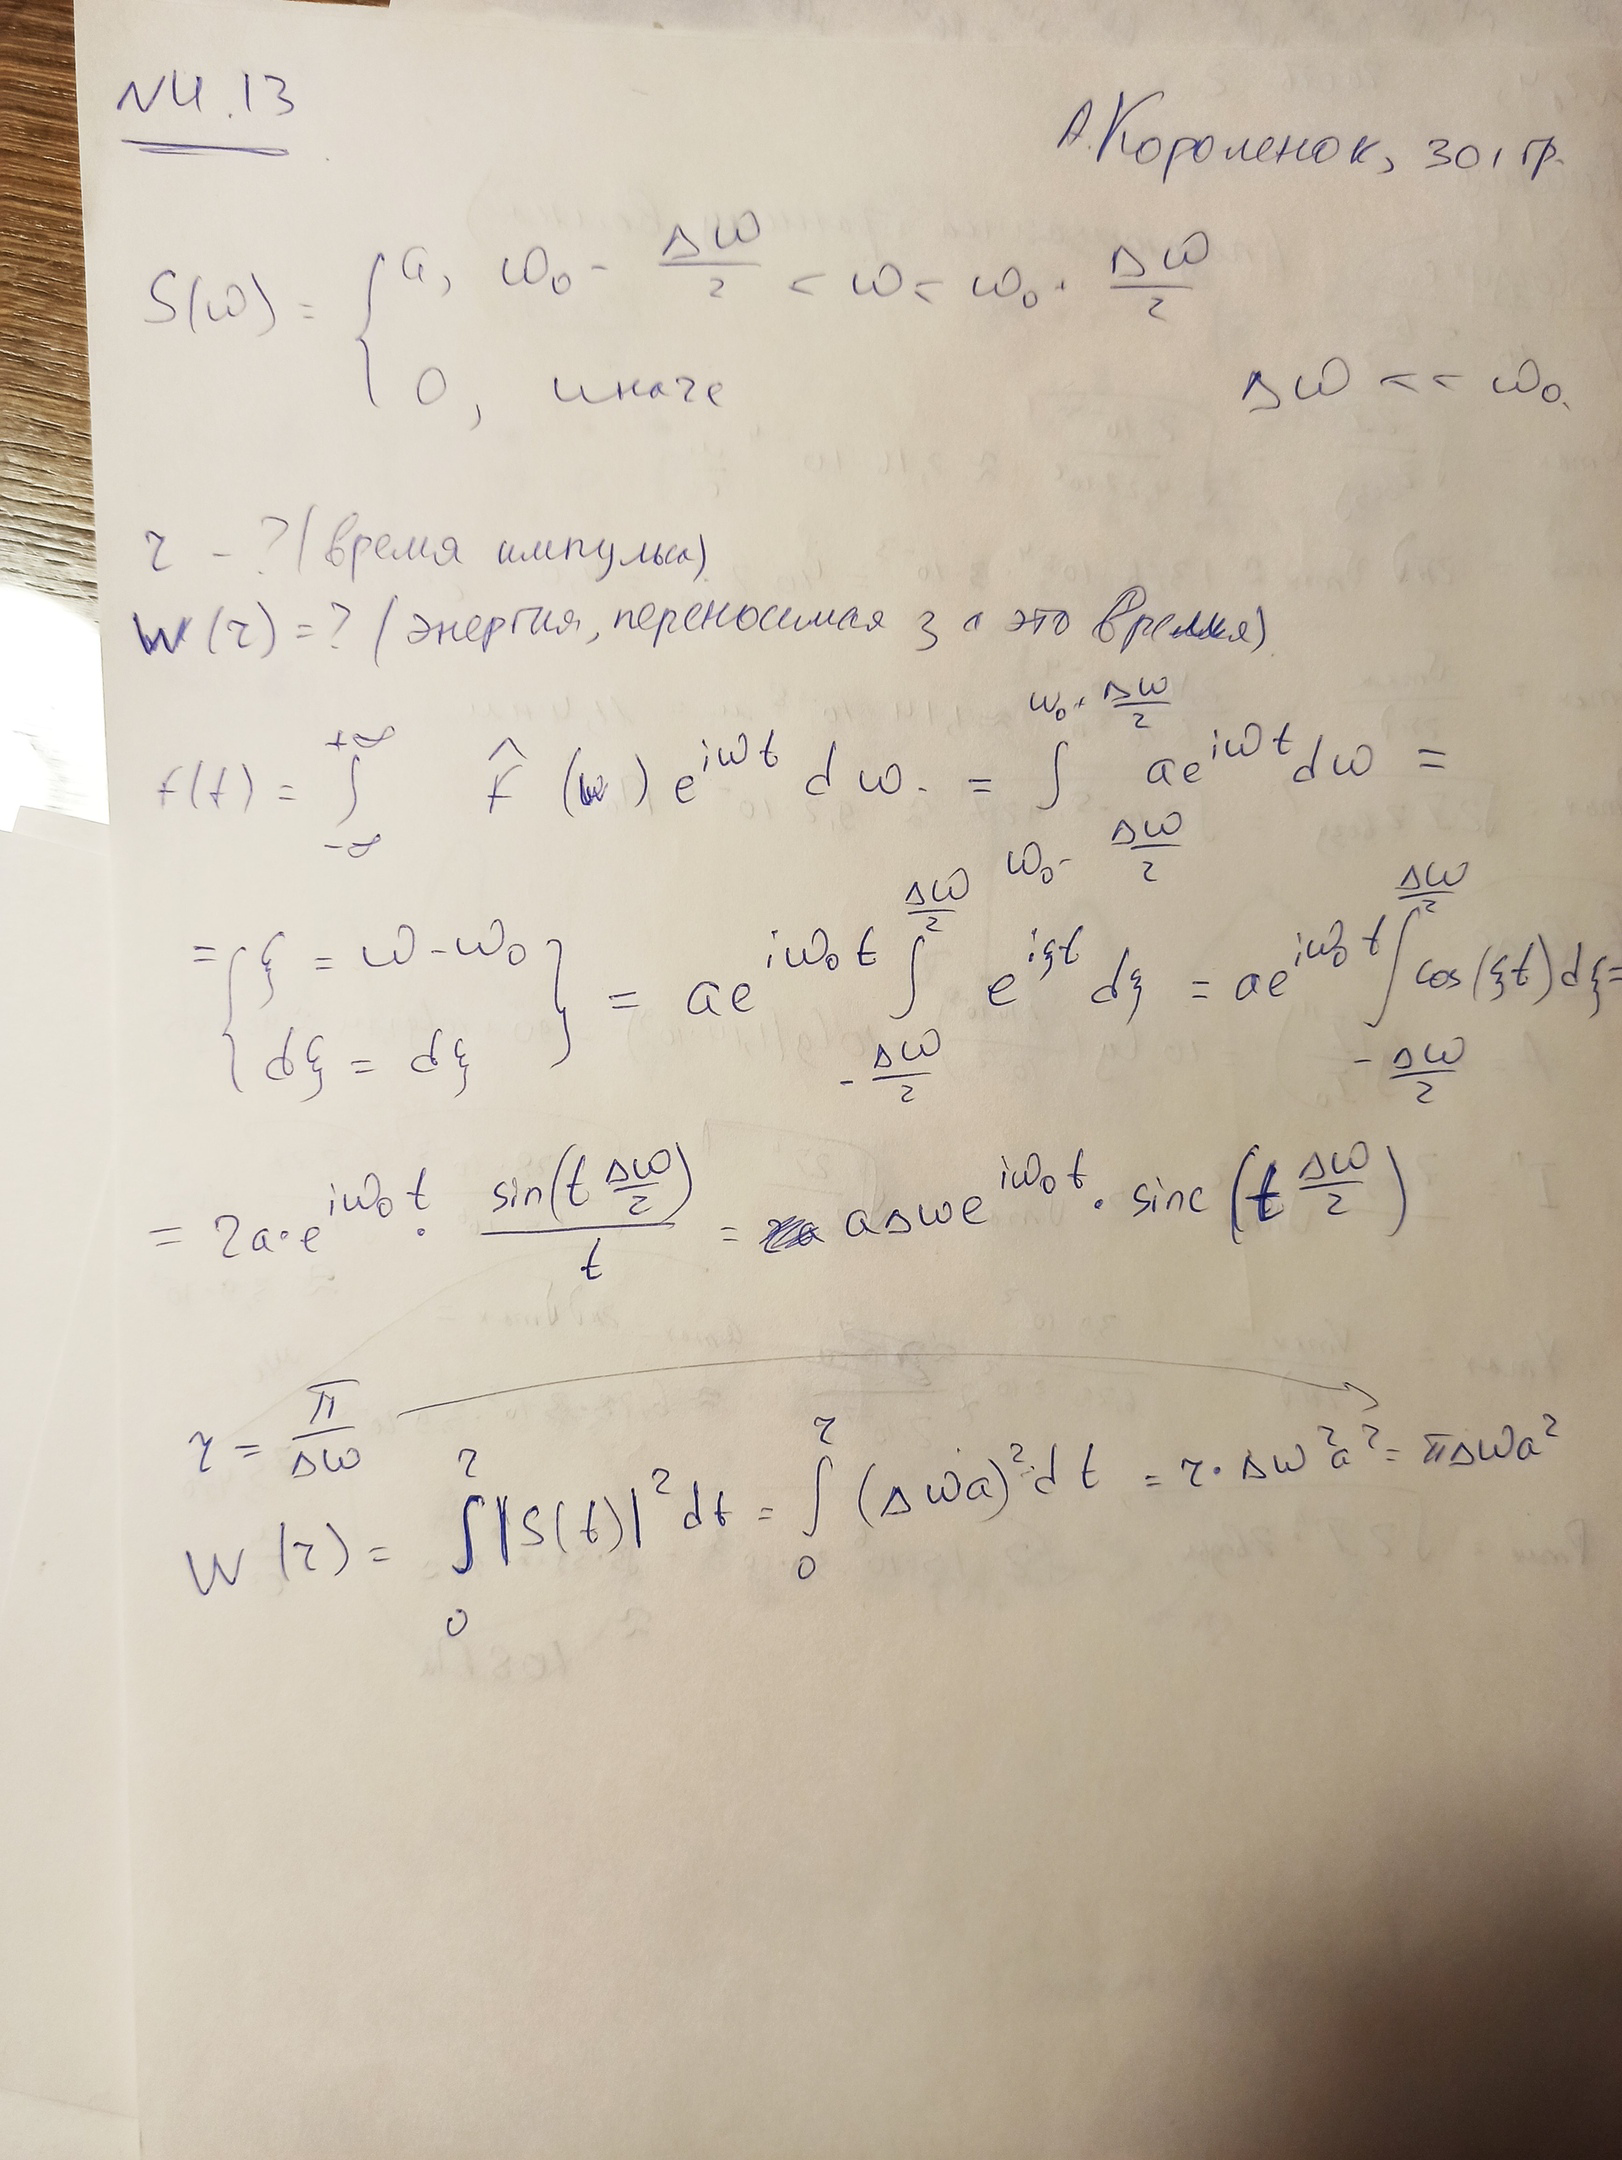 N4.13
А.Короленок, 301 гр.
S(ω) = { a, ω₀ - Δω/2 < ω < ω₀ + Δω/2
0, иначе
Δω << ω₀.
τ - ? (время импульса)
W(τ) = ? (энергия, переносимая за это время)
f(t) = ∫_{-∞}^{+∞} F̂(ω) e^{iωt} dω = ∫_{ω₀ - Δω/2}^{ω₀ + Δω/2} a e^{iωt} dω =
= { ξ = ω - ω₀ dξ = dξ } = a e^{iω₀t} ∫_{-Δω/2}^{Δω/2} e^{iξt} dξ = a e^{iω₀t} ∫_{-Δω/2}^{Δω/2} cos(ξt) dξ =
= 2a · e^{iω₀t} · sin(t Δω/2)/t = aΔω e^{iω₀t} · sinc(t Δω/2)
τ = π/Δω
W(τ) = ∫_0^τ |S(t)|² dt = ∫_0^τ (Δωa)² dt = τ · Δω²a² = πΔωa²